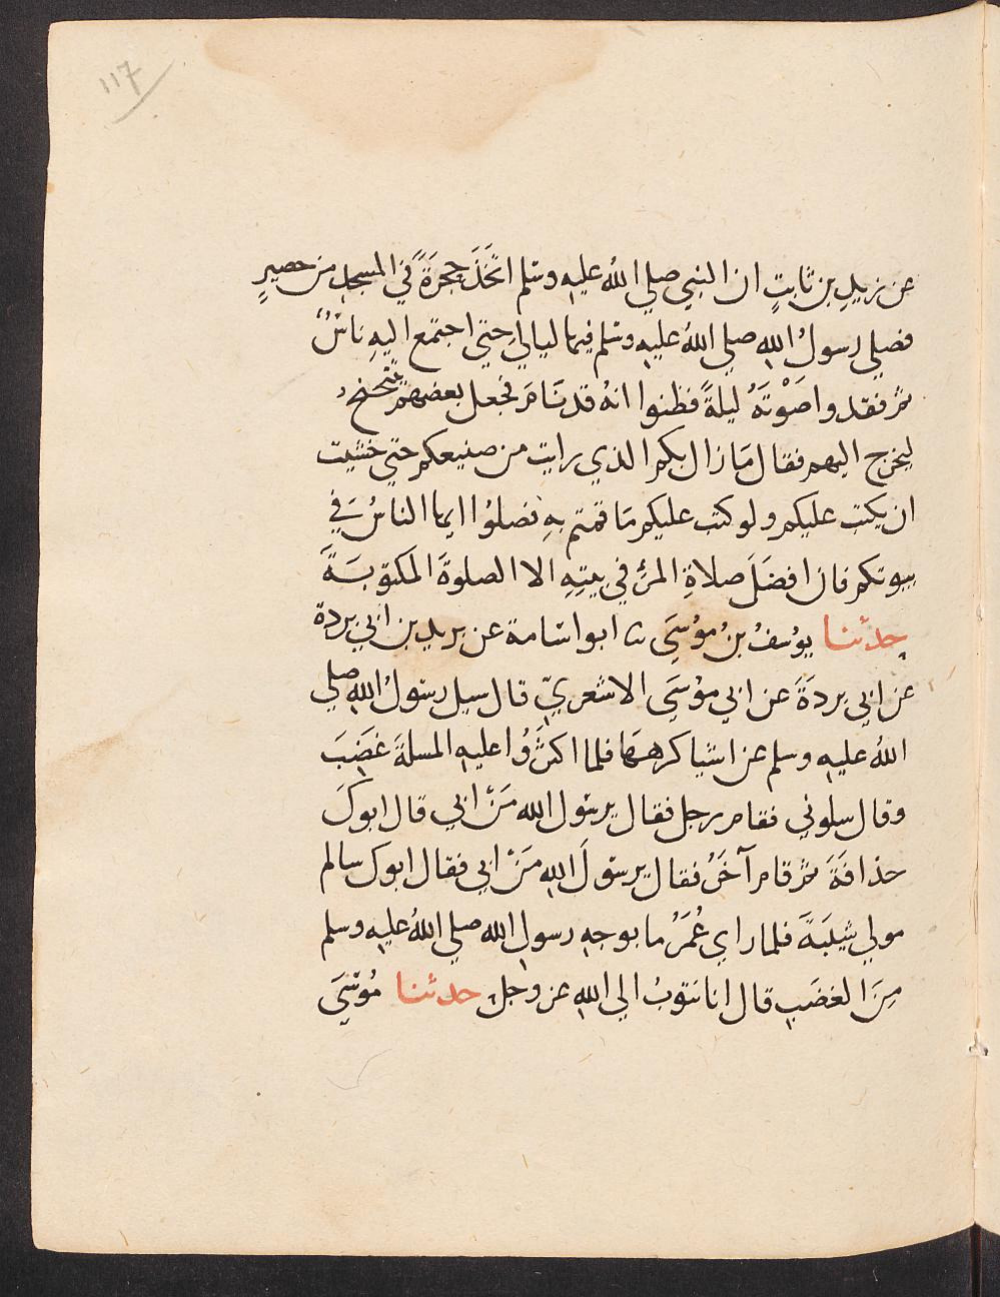 117
عن زيدِ بن ثابتٍ ان النبي صلي اللهُ عليهِ وسلم اتَّخَذَ حجرَةً في المسجد من حصيرٍ
فصلي رسولُ اللهِ صلي اللهُ عليهِ وسلم فيها ليالي حتي اجتمع اليهِ ناسٌ
ثم فقدوا صَوْتَهُ ليلةً فظنوا انهُ قد نَامَ فجعل بعضهم يتنحنح
ليخرج اليهم فقال مَا زال بكم الذي رايت من صنيعكم حتي خشيت
ان يكتب عليكم ولو كتب عليكم مَا قمتم بهِ فصلوُا ايها الناسُ في
بيوتكم فان افضَلَ صلاةِ المرْءِ في بيتِهِ الا الصلوةَ المكتوبَةَ
حدثنا يوُسفُ بنُ موُسَي ثنا ابو اسَامة عن بريد بن ابي بردة
عن ابي بردَةَ عن ابي موُسَي الاشعريّ قال سيل رسَولُ اللهِ صلي
اللهُ عليهِ وسلم عن اشيا كرههَا فلما اكثَرُوا عليهِ المسلةَ غضَِبَ
وقال سلوني فقام رجل فقال يرسَول الله مَنْ ابي قال ابوكَ
حذافَةَ ثم قام آخَرُ فقال يرسَولَ اللهِ مَنْ ابي فقال ابوك سالم
مولي شيبَةَ فلما راي عُمَرُ ما بوجهِ رسولِ الله صلي اللهُ عليه وسلم
مِنَ الغضَبِ قال انا نتوبُ الي اللهِ عز وجل حدثنا موُسَي